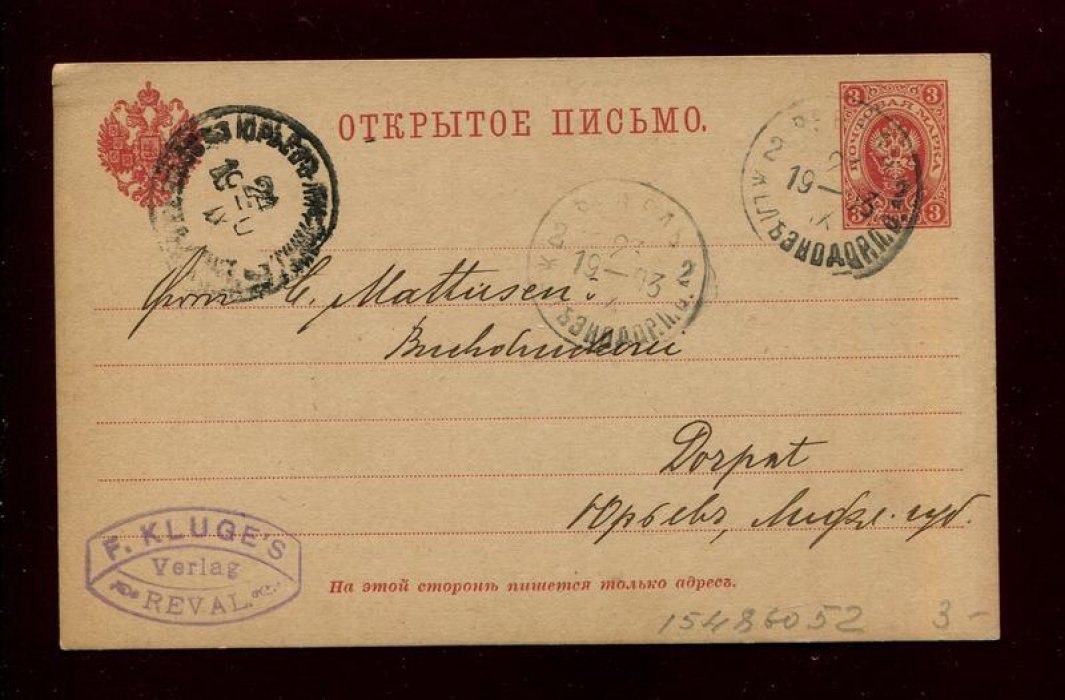 ОТКРЫТОЕ ПИСЬМО.
3 ПОЧТОВАЯ МАРКА 3
3 3
ЮРЬЕВЪ
19—03
2 19—03 2
C. Mattiesen's
Buchdruckerei
Dorpat
Юрьевъ, Лифл. губ.
F. KLUGE'S
Verlag
REVAL.
На этой сторонѣ пишется только адресъ.
15486052 3-